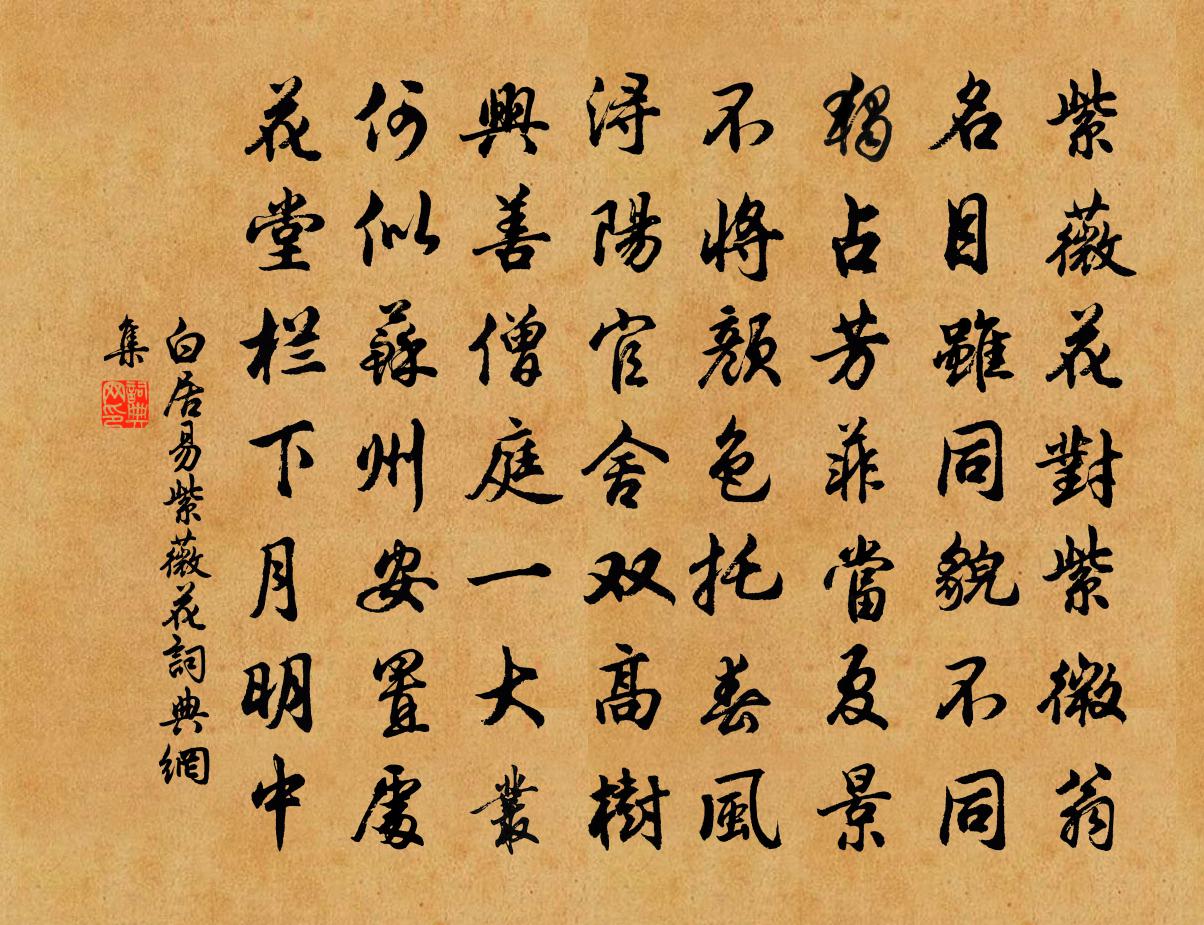 紫薇花對紫微翁
名目雖同貌不同
獨占芳菲當夏景
不將顏色托春風
潯陽官舍双高樹
興善僧庭一大叢
何似蘇州安置處
花堂栏下月明中
白居易紫薇花詞典網
集
詞典
网印